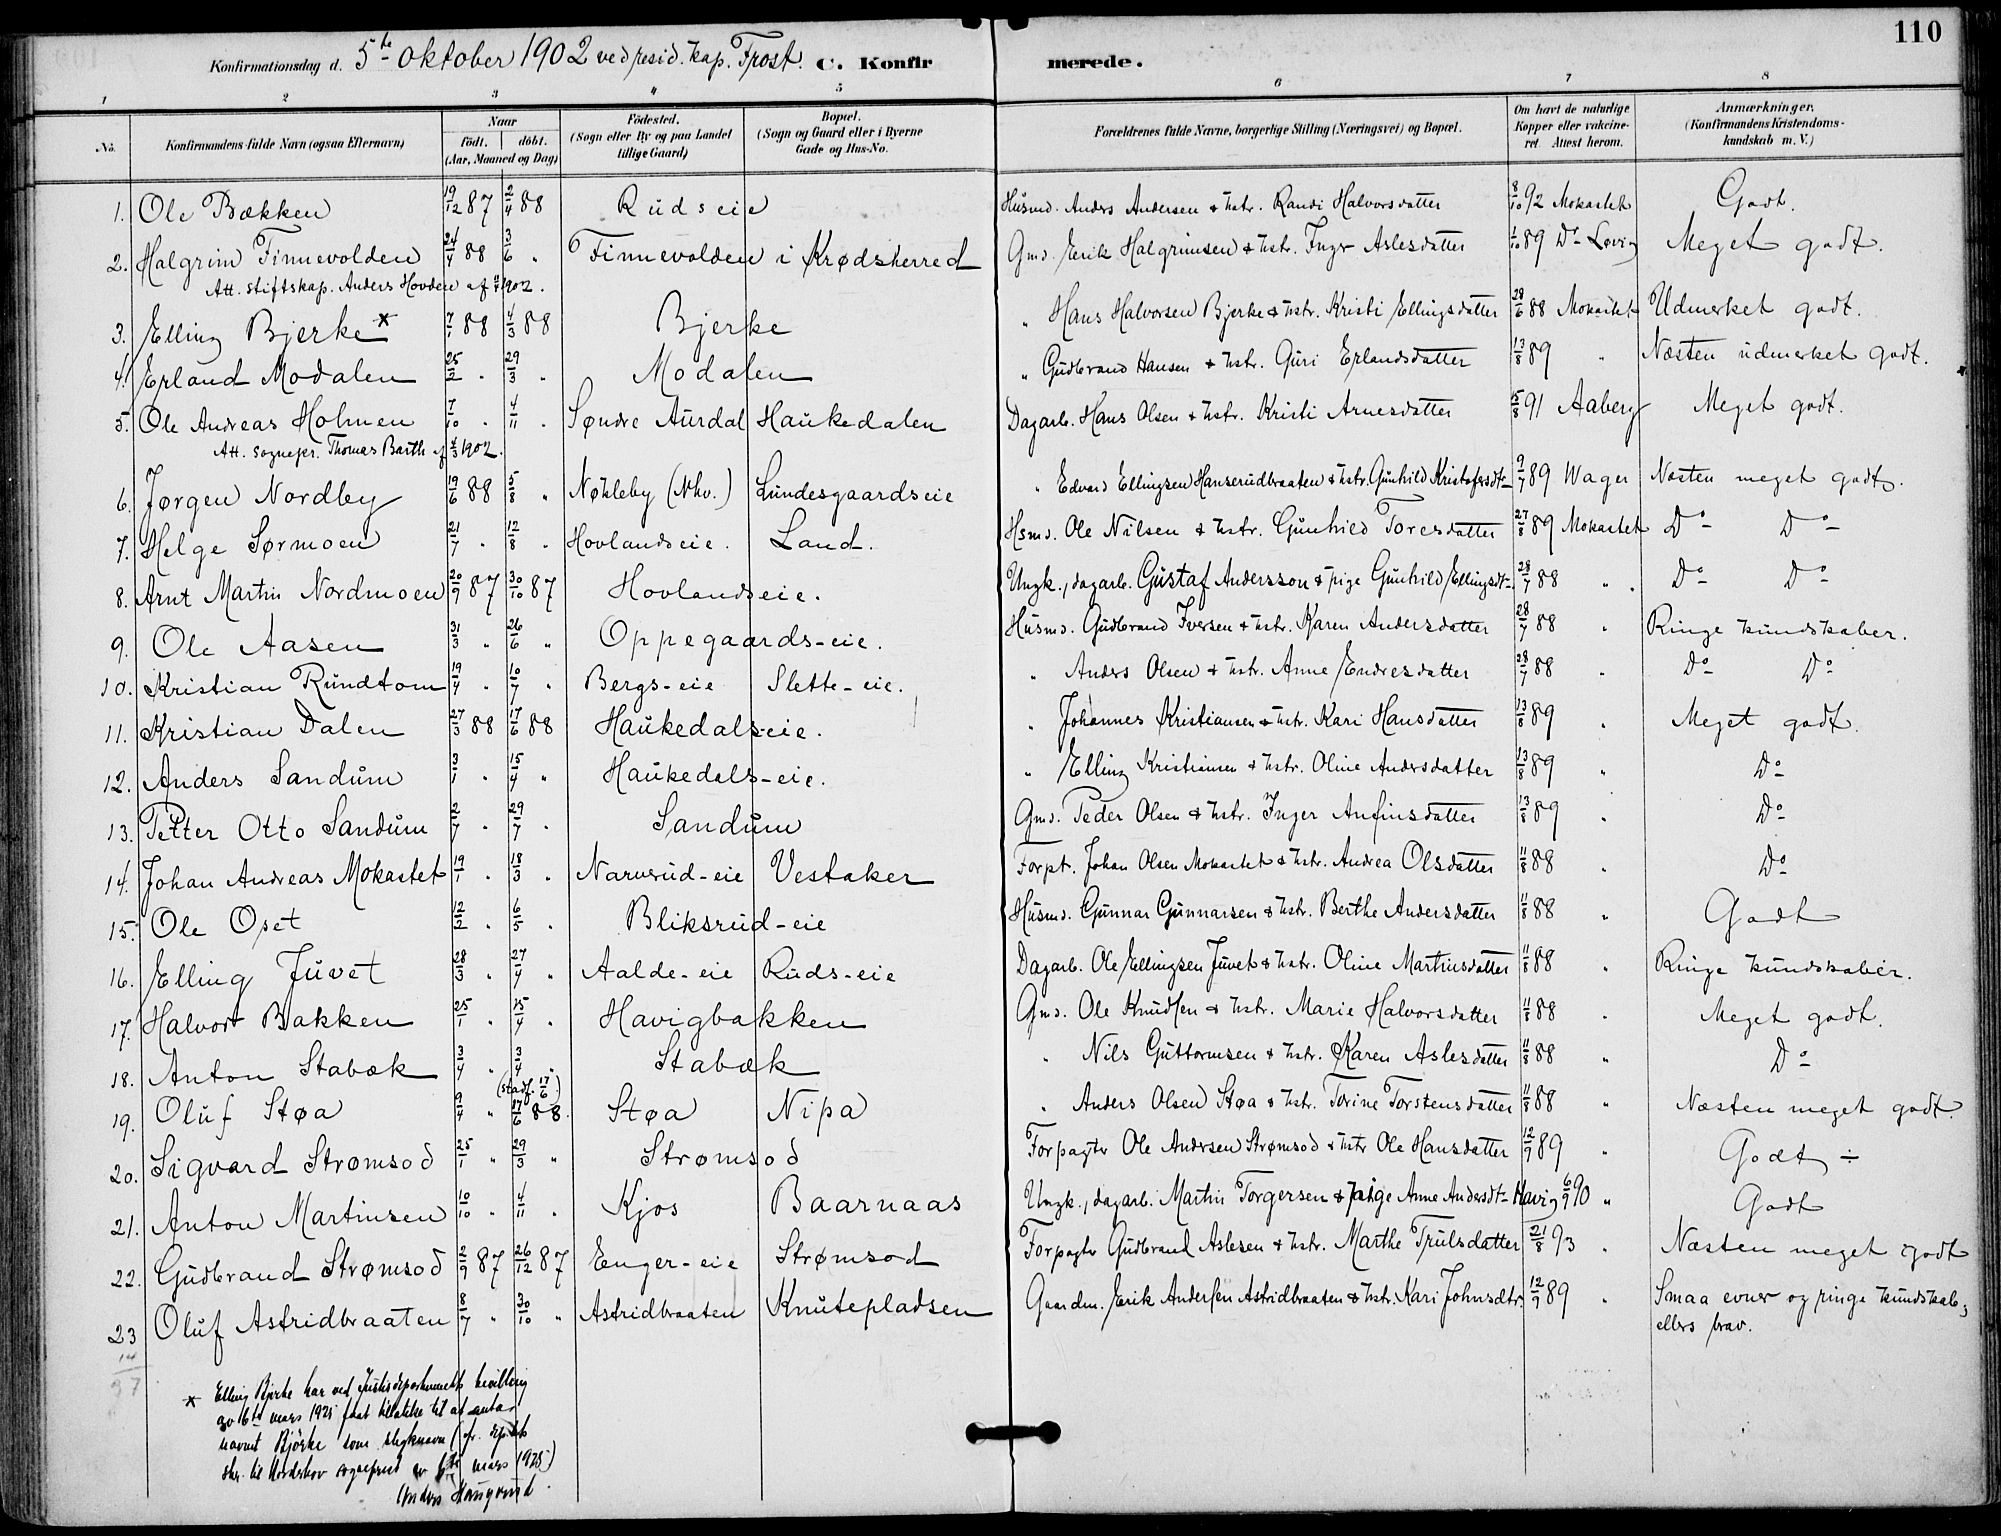 110
Konfirmationsdag d. 5te oktober 1902 ved resid. kap. Frost. C. Konfirmerede.
1 2 3 4 5 6 7 8
No. Konfirmandens fulde Navn (ogsaa Efternavn) Naar födt. döbt. (Aar, Maaned og Dag) Födested. (Sogn eller By og paa Landet tillige Gaard) Bopæl. (Sogn og Gaard eller i Byerne Gade og Hus-No. Forældrenes fulde Navne, borgerlige Stilling (Næringsvei) og Bopæl. Om havt de naturlige Kopper eller vakcineret. Attest herom. Anmærkninger. (Konfirmandens Kristendomskundskab m. V.)
1. Ole Bækken 19/12 87 2/4 88 Rudseie Husmd. Anders Andersen & hstr. Randi Halvorsdatter 8/10 92 Mokastet Godt.
2. Halgrim Finnevolden 24/4 88 3/6 " Finnevolden i Krødsherred Gmd. Erik Halgrimsen & hstr. Inger Aslesdatter 1/10 89 Do Løvig Meget godt.
Att. stiftskap. Anders Hovden af 1902.
3. Elling Bjerke * 7/1 88 4/3 88 Bjerke " Hans Halvorsen Bjerke & hstr. Kristi Ellingsdatter 28/6 88 Mokastet Udmerket godt.
4. Erland Modalen 25/2 " 29/3 " Modalen " Gudbrand Hansen & hstr. Guri Erlandsdatter 13/8 89 " Næsten udmerket godt.
5. Ole Andreas Holmen 7/10 " 4/11 " Søndre Aurdal Haukedalen Dagarb. Hans Olsen & hstr. Kristi Arnesdatter 15/8 91 Aaberg Meget godt.
Att. sognepr. Thomas Barth af 4/3 1902.
6. Jørgen Nordby 19/6 88 5/8 " Nøkleby (Nhv.) Lundesgaardseie " Edvard Ellingsen Hanserudbraaten & hstr. Gunhild Kristofersdtr 9/7 89 Wager Næsten meget godt.
7. Helge Sørmoen 21/7 " 12/8 " Hovlandseie. Land. Hsmd. Ole Nilsen & hstr. Gunhild Toresdatter 27/8 89 Mokastet Do Do
8. Arnt Martin Nordmoen 20/9 87 30/10 87 Hovlandseie. Ungk., dagarb. Gustaf Andersson & pige Gunhild Ellingsdt. 28/7 88 " Do Do
9. Ole Aasen 31/3 " 26/6 " Oppegaards-eie. Husmd. Gudbrand Iversen & hstr. Karen Andersdatter 28/7 88 " Ringe kundskaber.
10. Kristian Rundtom 19/4 " 10/7 " Bergs-eie Slette-eie. " Anders Olsen & hstr. Anne Endresdatter 28/7 88 " Do Do
11. Kristian Dalen 27/3 88 17/6 88 Haukedalseie. " Johannes Kristiansen & hstr. Kari Hansdatter 13/8 89 " Meget godt.
12. Anders Sandum 3/1 " 15/4 " Haukedals-eie. " Elling Kristiansen & hstr. Oline Andersdatter 13/8 89 " Do
13. Petter Otto Sandum 2/7 " 29/7 " Sandum Gmd. Peder Olsen & hstr. Inger Anfinsdatter 13/8 89 " Do
14. Johan Andreas Mokastet 19/1 " 18/3 " Narverud-eie Vestaker Forpt. Johan Olsen Mokastet & hstr. Andrea Olsdatter 11/8 88 " Do
15. Ole Opet 12/2 " 6/5 " Bliksrud-eie Husmd. Gunnar Gunnarsen & hstr. Berthe Andersdatter 11/8 88 " Godt
16. Elling Juvet 28/3 " 27/4 " Aalde-eie Ruds-eie Dagarb. Ole Ellingsen Juvet & hstr. Oline Martinsdatter 11/8 88 " Ringe kundskaber.
17. Halvor Bakken 25/1 " 15/4 " Havigbakken Gmd. Ole Knudsen & hstr. Marie Halvorsdatter 11/8 88 " Meget godt.
18. Anton Stabæk 3/4 " 3/4 " Stabæk " Nils Guttormsen & hstr. Karen Aslesdatter 11/8 88 " Do
(stadf. 17/6)
19. Oluf Støa 9/4 " 17/6 88. Støa Nipa " Anders Olsen Støa & hstr. Torine Torstensdatter 11/8 88 " Næsten meget godt.
20. Sigvard Strømsod 25/1 " 29/3 " Strømsod Forpagter Ole Andersen Strømsod & hstr Ole Hansdatter 12/9 89 " Godt ÷
21. Anton Martinsen 10/10 " 4/11 " Kjos Baarnaas Ungk., dagarb. Martin Torgersen & pige Anne Andersdt. Havig 6/9 90 " Godt
22. Gudbrand Strømsod 2/9 87 26/12 87 Enger-eie Strømsod Forpagter Gudbrand Aslesen & hstr. Marthe Trulsdatter 21/8 93 " Næsten meget godt
23 Oluf Astridbraaten 8/7 " 30/10 " Astridbraaten Knutepladsen Gaardm. Erik Andersen Astridbraaten & hstr. Kari Johnsdtr. 12/9 89 " Smaa evner og ringe kundskab,
ellers brav.
14
37
* Elling Bjerke har ved Justisdepartementets bevilling
av 16de mars 1925 faat tilladelse til at anta
navnet Bjørke som slegtsnavn (jfr. depts
skr. til Norderhov sogneprest av mars 1925)
Anders Haugerud.